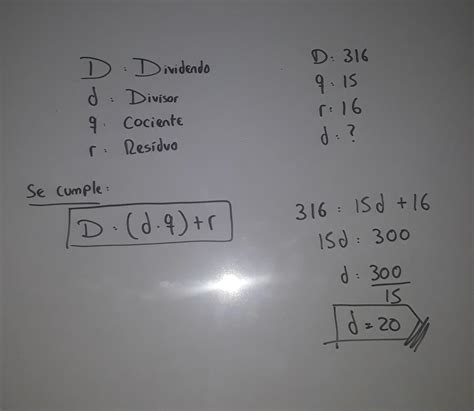 D: Dividendo
d: Divisor
q: Cociente
r: Residuo
Se cumple:
D: (d.q)+r
D: 316
q: 15
r: 16
d: ?
316: 15d +16
15d: 300
d: 300
15
d = 20